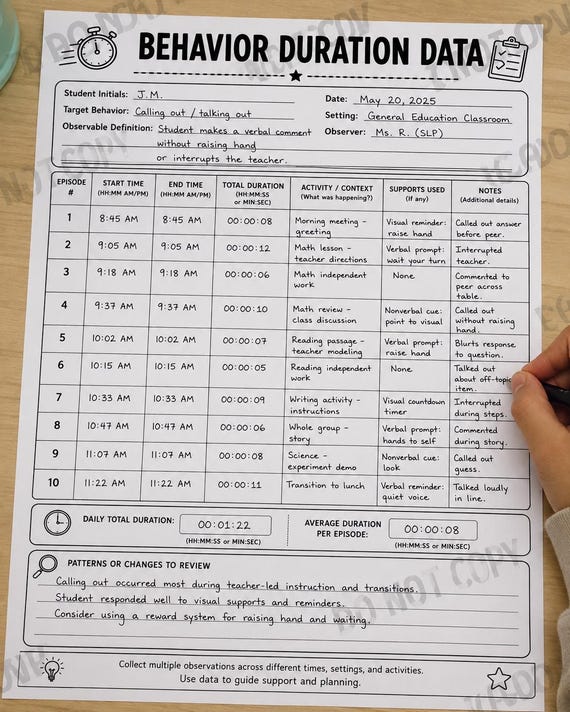 BEHAVIOR DURATION DATA
Student Initials: J.M.
Date: May 20, 2025
Target Behavior: Calling out / talking out
Setting: General Education Classroom
Observable Definition: Student makes a verbal comment
Observer: Ms. R. (SLP)
without raising hand
or interrupts the teacher.
EPISODE # START TIME (HH:MM AM/PM) END TIME (HH:MM AM/PM) TOTAL DURATION (HH:MM:SS or MIN:SEC) ACTIVITY / CONTEXT (What was happening?) SUPPORTS USED (If any) NOTES (Additional details)
1 8:45 AM 8:45 AM 00:00:08 Morning meeting - greeting Visual reminder: raise hand Called out answer before peer.
2 9:05 AM 9:05 AM 00:00:12 Math lesson - teacher directions Verbal prompt: wait your turn Interrupted teacher.
3 9:18 AM 9:18 AM 00:00:06 Math independent work None Commented to peer across table.
4 9:37 AM 9:37 AM 00:00:10 Math review - class discussion Nonverbal cue: point to visual Called out without raising hand.
5 10:02 AM 10:02 AM 00:00:07 Reading passage - teacher modeling Verbal prompt: raise hand Blurts response to question.
6 10:15 AM 10:15 AM 00:00:05 Reading independent work None Talked out about off-topic item.
7 10:33 AM 10:33 AM 00:00:09 Writing activity - instructions Visual countdown timer Interrupted during steps.
8 10:47 AM 10:47 AM 00:00:06 Whole group - story Verbal prompt: hands to self Commented during story.
9 11:07 AM 11:07 AM 00:00:08 Science - experiment demo Nonverbal cue: look Called out guess.
10 11:22 AM 11:22 AM 00:00:11 Transition to lunch Verbal reminder: quiet voice Talked loudly in line.
DAILY TOTAL DURATION: 00:01:22
(HH:MM:SS or MIN:SEC)
AVERAGE DURATION
PER EPISODE: 00:00:08
(HH:MM:SS or MIN:SEC)
PATTERNS OR CHANGES TO REVIEW
Calling out occurred most during teacher-led instruction and transitions.
Student responded well to visual supports and reminders.
Consider using a reward system for raising hand and waiting.
Collect multiple observations across different times, settings, and activities.
Use data to guide support and planning.
DO NOT COPY